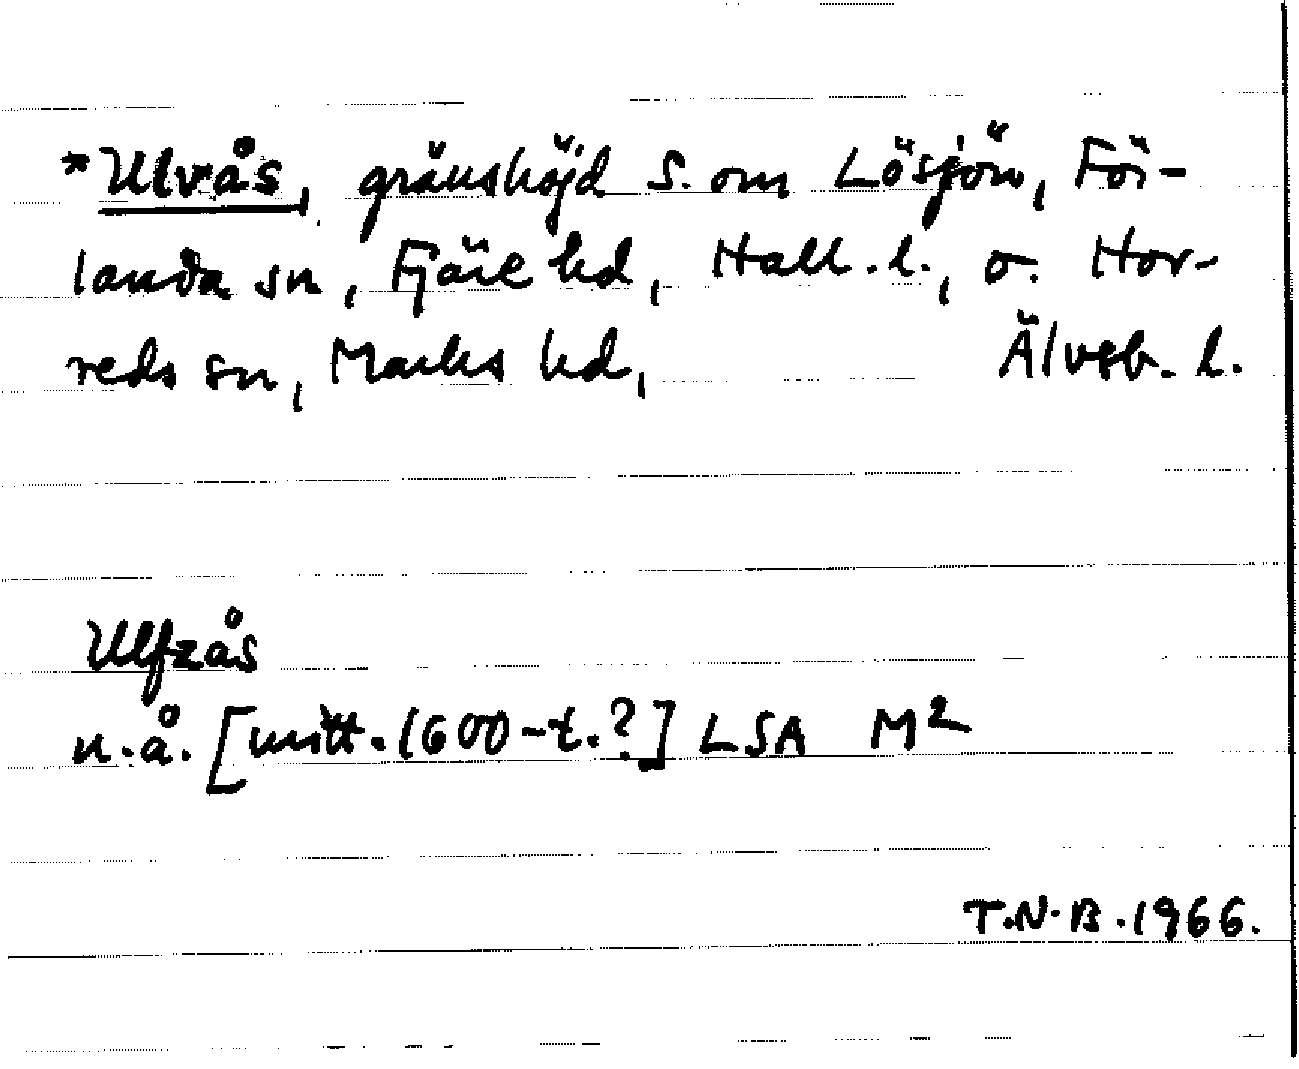 *Ulvås, gränshöjd S. om Lösjön, För-
landa sn, Fjäre hd, Hall. l., o. Hor-
reds sn, Marks hd, Älvsb. l.
Ulfzås
n.å. [mitt. 1600-t.?] LSA M²
T.N.B. 1966.